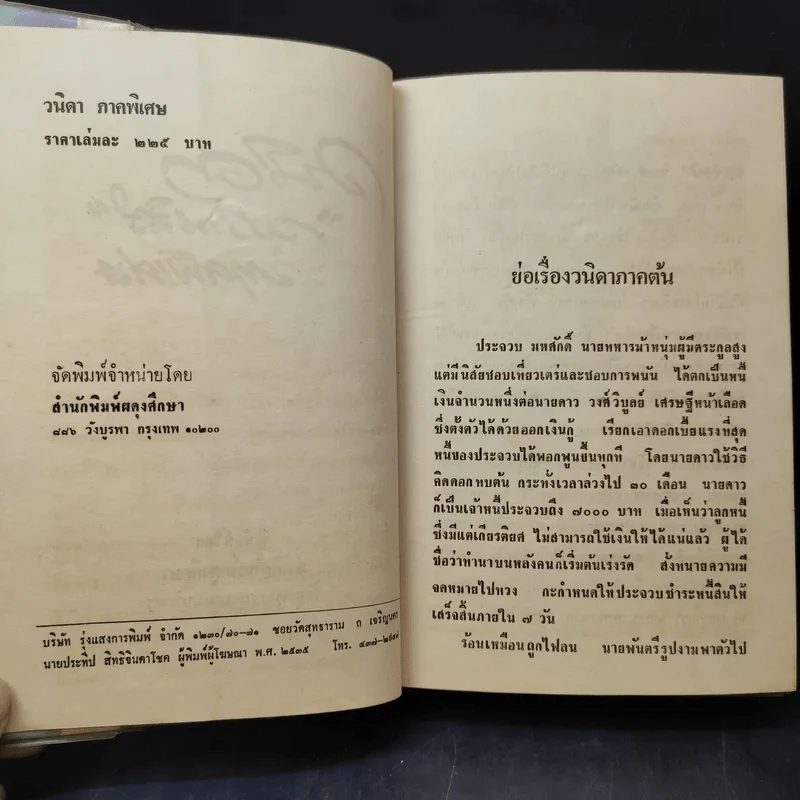 วนิดา ภาคพิเศษ
ราคาเล่มละ ๒๒๕ บาท
จัดพิมพ์จำหน่ายโดย
สำนักพิมพ์ผดุงศึกษา
๘๘๖ วังบูรพา กรุงเทพ ๑๐๒๐๐
บริษัท รุ่งแสงการพิมพ์ จำกัด ๑๒๓๐/๗๐-๗๑ ซอยวัดสุทธาราม ถ เจริญนคร
นายประทีป สิทธิจินดาโชค ผู้พิมพ์ผู้โฆษณา พ.ศ. ๒๕๓๕ โทร.
ย่อเรื่องวนิดาภาคต้น
ประจวบ มหศักดิ์ นายทหารม้าหนุ่มผู้มีตระกูลสูง
แต่มีนิสัยชอบเที่ยวเตร่และชอบการพนัน ได้ตกเป็นหนี้
เงินจำนวนหนึ่งต่อนายดาว วงศ์วิบูลย์ เศรษฐีหน้าเลือด
ซึ่งตั้งตัวได้ด้วยออกเงินกู้ เรียกเอาดอกเบี้ยแรงที่สุด
หนี้ของประจวบได้พอกพูนขึ้นทุกที โดยนายดาวใช้วิธี
คิดดอกทบต้น กระทั่งเวลาล่วงไป ๓๐ เดือน นายดาว
ก็เป็นเจ้าหนี้ประจวบถึง ๗๐๐๐ บาท เมื่อเห็นว่าลูกหนี้
ซึ่งมีแต่เกียรติยศ ไม่สามารถใช้เงินให้ได้แน่แล้ว ผู้ได้
ชื่อว่าทำนาบนหลังคนก็เริ่มต้นเร่งรัด สั่งทนายความมี
จดหมายไปทวง กะกำหนดให้ประจวบชำระหนี้สินให้
เสร็จสิ้นภายใน ๗ วัน
ร้อนเหมือนถูกไฟลน นายพันตรีรูปงามพาตัวไป